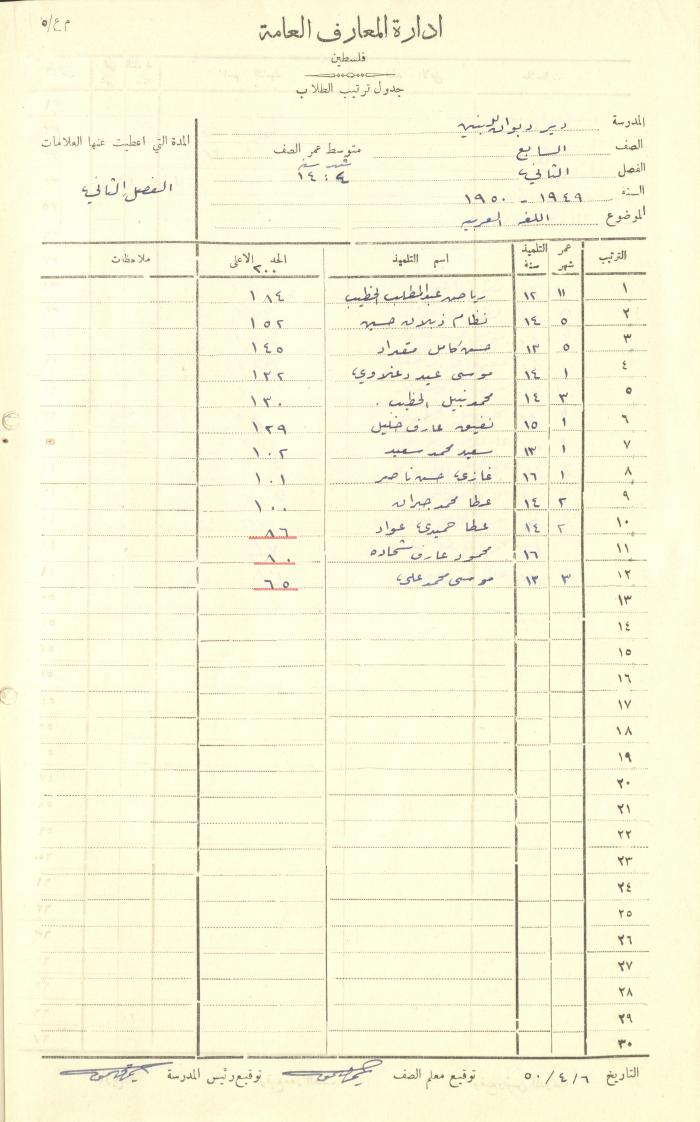 م ع/٥
ادارة المعارف العامة
فلسطين
جدول ترتيب الطلاب
المدرسة دير ديوان للبنين
الصف السابع متوسط عمر الصف
شهر سنة
٤ : ١٤
الفصل الثاني
السنة ١٩٤٩ - ١٩٥٠
الموضوع اللغه العربيه
المدة التي اعطيت عنها العلامات
الفصل الثاني
الترتيب عمر التلميذ شهر سنة اسم التلميذ الحد الاعلى ٢٠٠ ملاحظات
١ ١١ ١٢ رياض عبد المطلب الخطيب ١٨٤
٢ ٥ ١٤ نظام ذبلان حسين ١٥٢
٣ ٥ ١٣ حسن كامل مقداد ١٤٥
٤ ١ ١٤ موسى عيد ١٣٢
٥ ٣ ١٤ محمد نبيل الخطيب . ١٣٠
٦ ١ ١٥ عارف خليل ١٢٩
٧ ١ ١٣ سعيد محمد سعيد ١٠٢
٨ ١ ١٦ غازي حسن ناصر ١٠١
٩ ٢ ١٤ عطا محمد جبران ١٠٠
١٠ ٢ ١٤ عطا حميدي عواد ٨٦
١١ ١٦ محمود عارف شحاده ٨٠
١٢ ٣ ١٣ موسى محمد علي ٦٥
١٣
١٤
١٥
١٦
١٧
١٨
١٩
٢٠
٢١
٢٢
٢٣
٢٤
٢٥
٢٦
٢٧
٢٨
٢٩
٣٠
التاريخ ٥٠/٤/٦ توقيع معلم الصف توقيع رئيس المدرسة